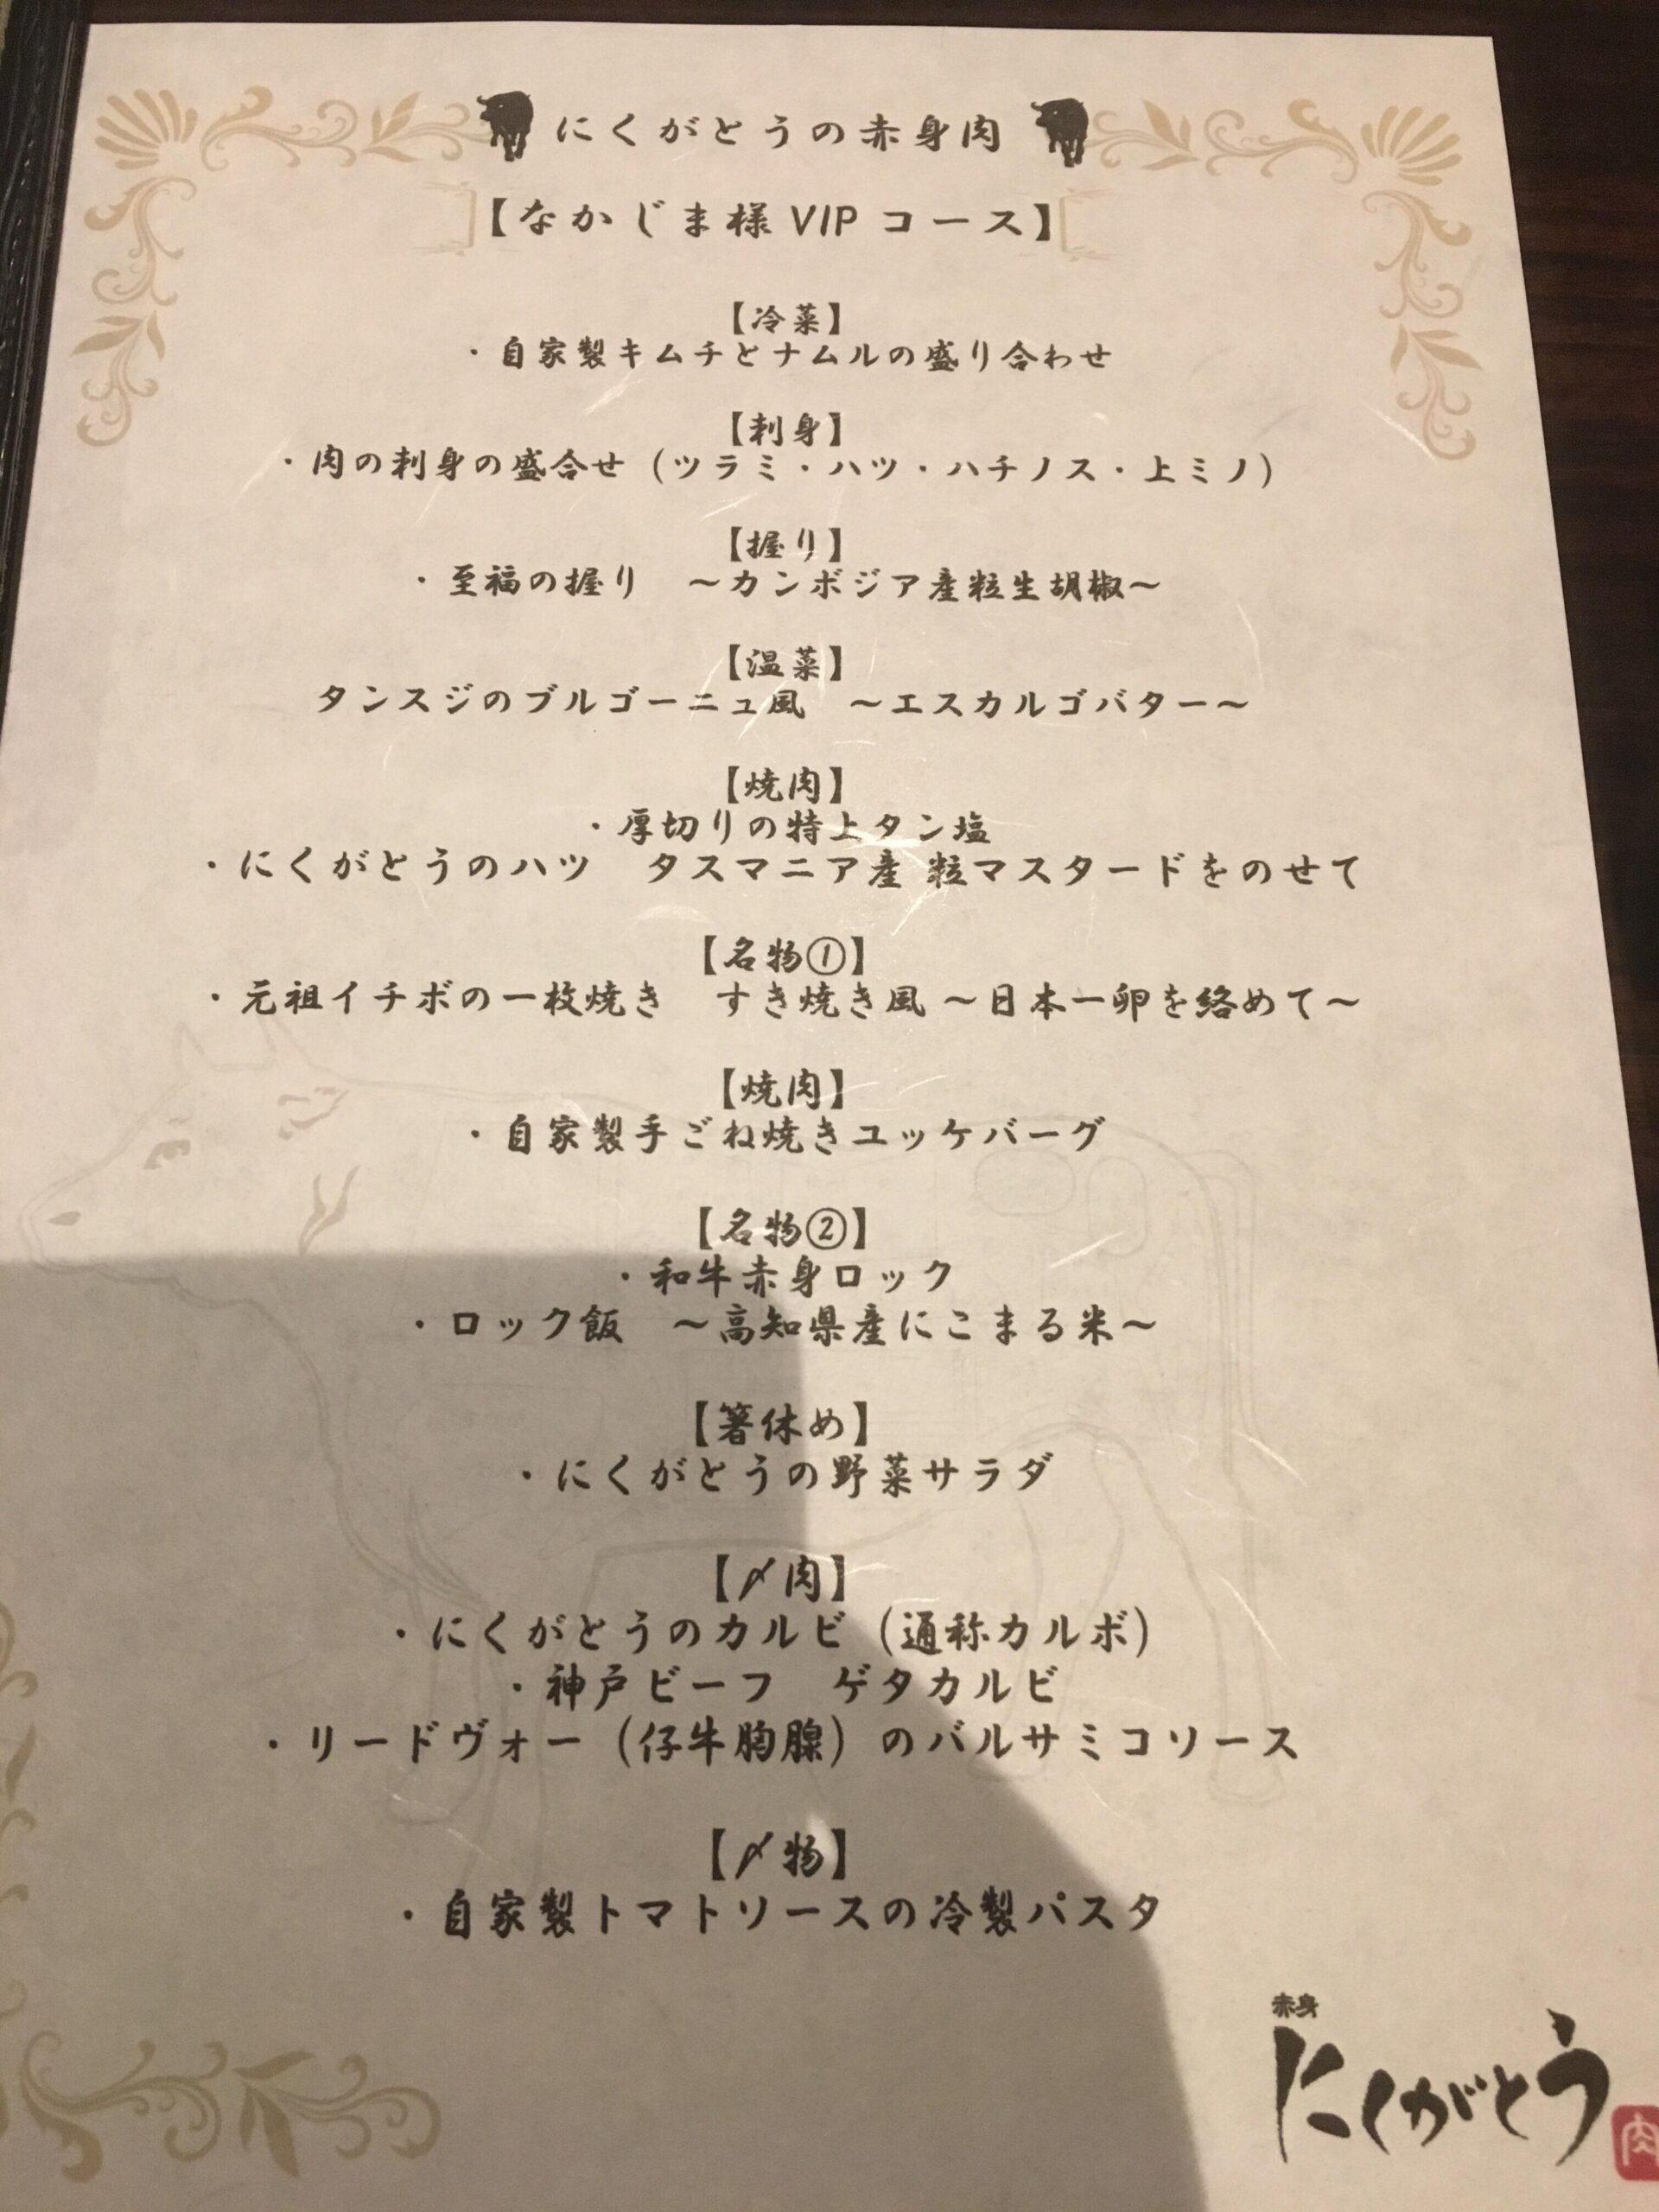 にくがとうの赤身肉
【なかじま様VIPコース】
【冷菜】
・自家製キムチとナムルの盛り合わせ
【刺身】
・肉の刺身の盛合せ（ツラミ・ハツ・ハチノス・上ミノ）
【握り】
・至福の握り　～カンボジア産粒生胡椒～
【温菜】
タンスジのブルゴーニュ風　～エスカルゴバター～
【焼肉】
・厚切りの特上タン塩
・にくがとうのハツ　タスマニア産 粒マスタードをのせて
【名物①】
・元祖イチボの一枚焼き　すき焼き風 ～日本一卵を絡めて～
【焼肉】
・自家製手ごね焼きユッケバーグ
【名物②】
・和牛赤身ロック
・ロック飯　～高知県産にこまる米～
【箸休め】
・にくがとうの野菜サラダ
【〆肉】
・にくがとうのカルビ（通称カルボ）
・神戸ビーフ　ゲタカルビ
・リードヴォー（仔牛胸腺）のバルサミコソース
【〆物】
・自家製トマトソースの冷製パスタ
赤身
にくがとう
肉